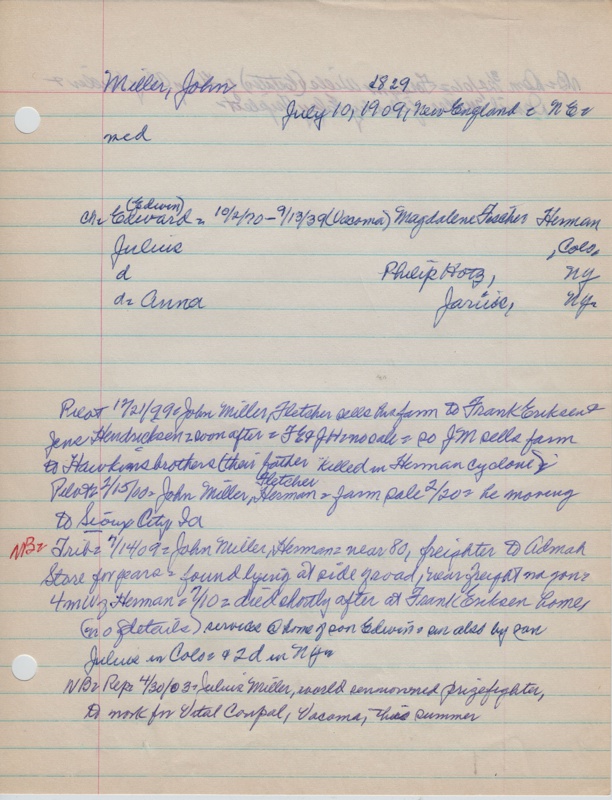 Miller, John 1829
July 10, 1909, New England = NE=
med
(Edwin)
ch= Edward = 10/2/70 - 9/13/39 (Vacoma) Magdalene Fischer Herman
Julius , Colo.
d Philip Hotz, NY
d= Anna Jarvise, Ny=
Pilot 12/21/99 = John Miller, Fletcher sells his farm to Frank Eriksen &
Jens Hendricksen = soon after = FE & JH = so JM sells farm
to Hawkins brothers (their father killed in Herman cyclone)
Fletcher
Pilot = 2/15/00 = John Miller, Herman = farm sale 2/20 = he moving
to Sioux City, Ia
NB= Trib = 7/14/09 = John Miller, Herman = near 80, freighter to Admah
Store for years = found lying at side of road, near freight wagon =
4 m W of Herman = 7/10 = died shortly after at Frank Eriksen home,
(no details) services @ home of son Edwin = sur also by son
Julius in Colo = & 2d in NY=
NB= Rep= 4/30/03 = Julius Miller, world renowned prizefighter,
to work for Vital Coupal, Vacoma, this summer